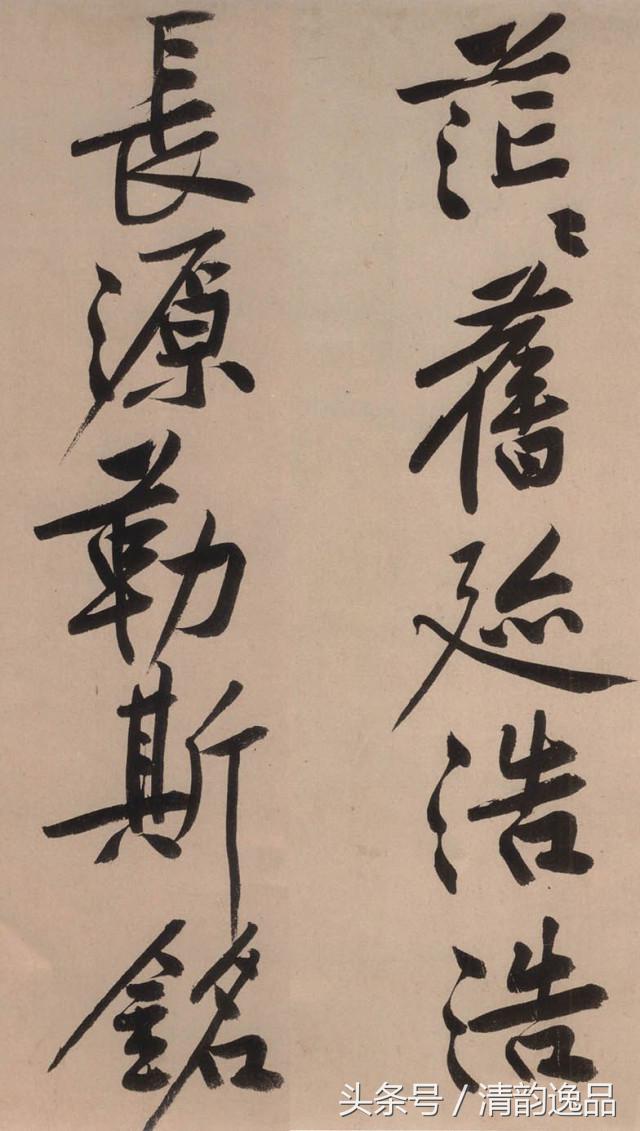 茫〻舊迹浩浩
長源勒斯銘
头条号 / 清韵逸品